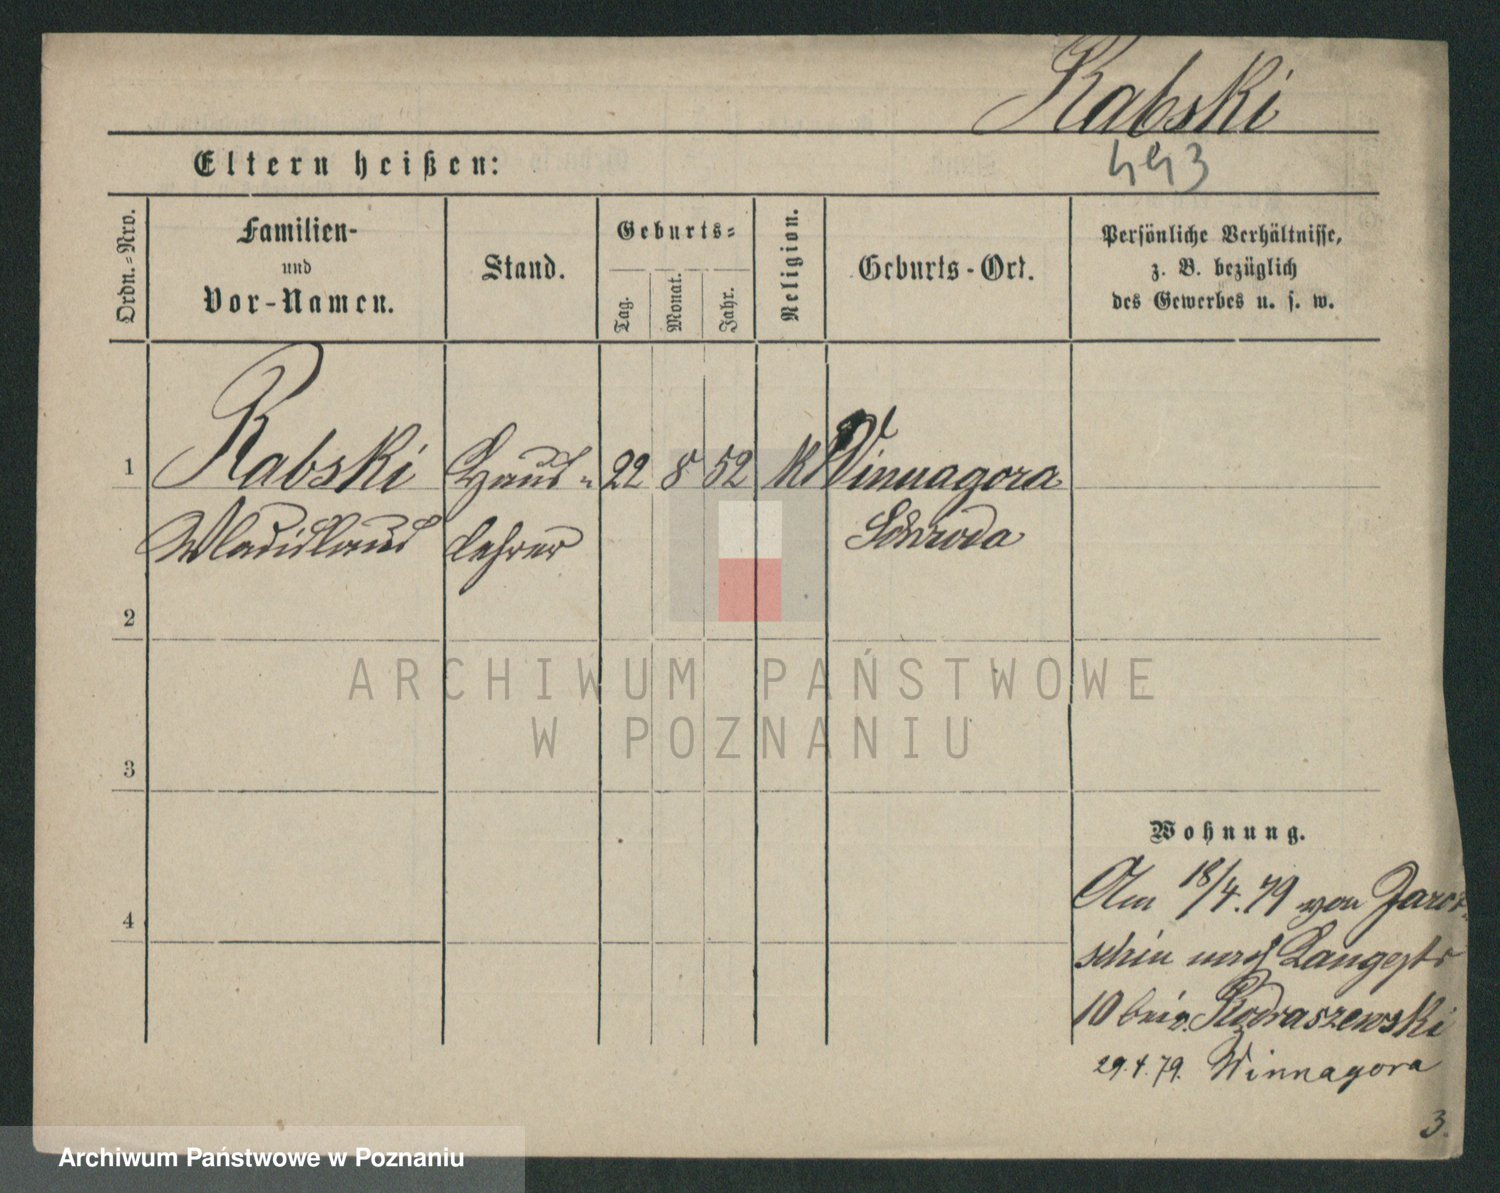 Rabski
Eltern heißen:
493
Ordn.-Nro.
Familien-
und
Vor-Namen.
Stand.
Geburts-
Tag.
Monat.
Jahr.
Religion.
Geburts-Ort.
Persönliche Verhältnisse,
z. B. bezüglich
des Gewerbes u. s. w.
1 Rabski Haus- 22 8 52 K Winnagora
Wladislaus lehrer Schroda
2
3
4
ARCHIWUM PAŃSTWOWE
W POZNANIU
Wohnung.
Am 18/4.79 von Jarot-
schin nach Langestr
10 bei
29.4.79. Winnagora
3.
Archiwum Państwowe w Poznaniu